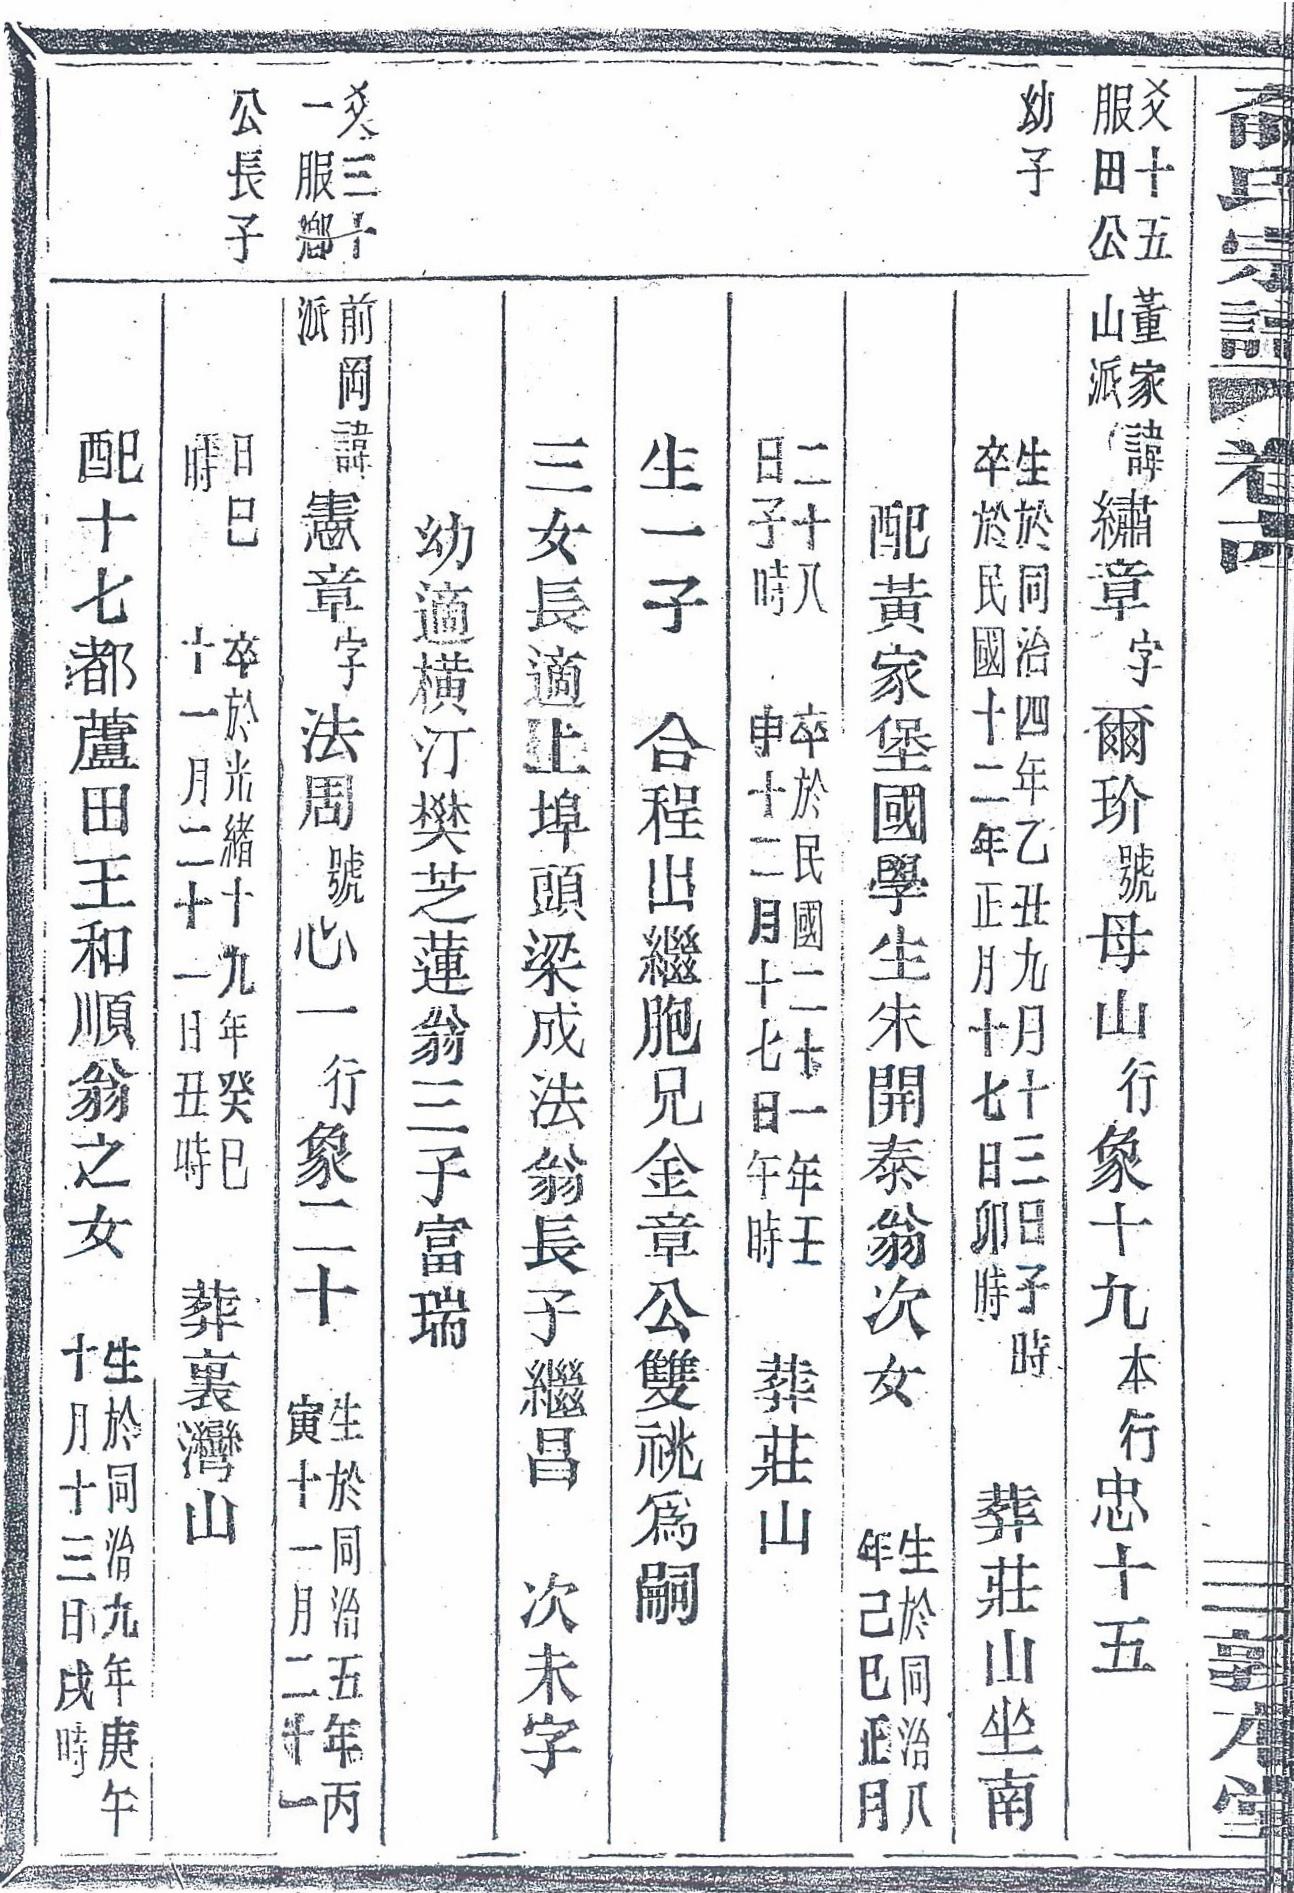 俞氏宗譜 卷六
三 敦本堂
爻十五
服田公
幼子
董家
山派
諱繡章字爾玠號母山行象十九本行忠十五
生於同治四年乙丑九月十三日子時
卒於民國十二年正月十七日卯時
葬莊山坐南
配黃家堡國學生朱開泰翁次女
生於同治八
年己巳正月
二十八
日子時
卒於民國二十一年壬
申十二月十七日午時
葬莊山
生一子 合程出繼胞兄金章公雙祧爲嗣
三女長適上埠頭梁成法翁長子繼昌 次未字
幼適橫汀樊芝蓮翁三子富瑞
爻三十
一服鄉
公長子
前岡
派
諱憲章字法周號心一行象二十
生於同治五年丙
寅十一月二十一
日巳
時
卒於光緒十九年癸巳
十一月二十一日丑時
葬裏灣山
配十七都蘆田王和順翁之女
生於同治九年庚午
十月十三日戌時